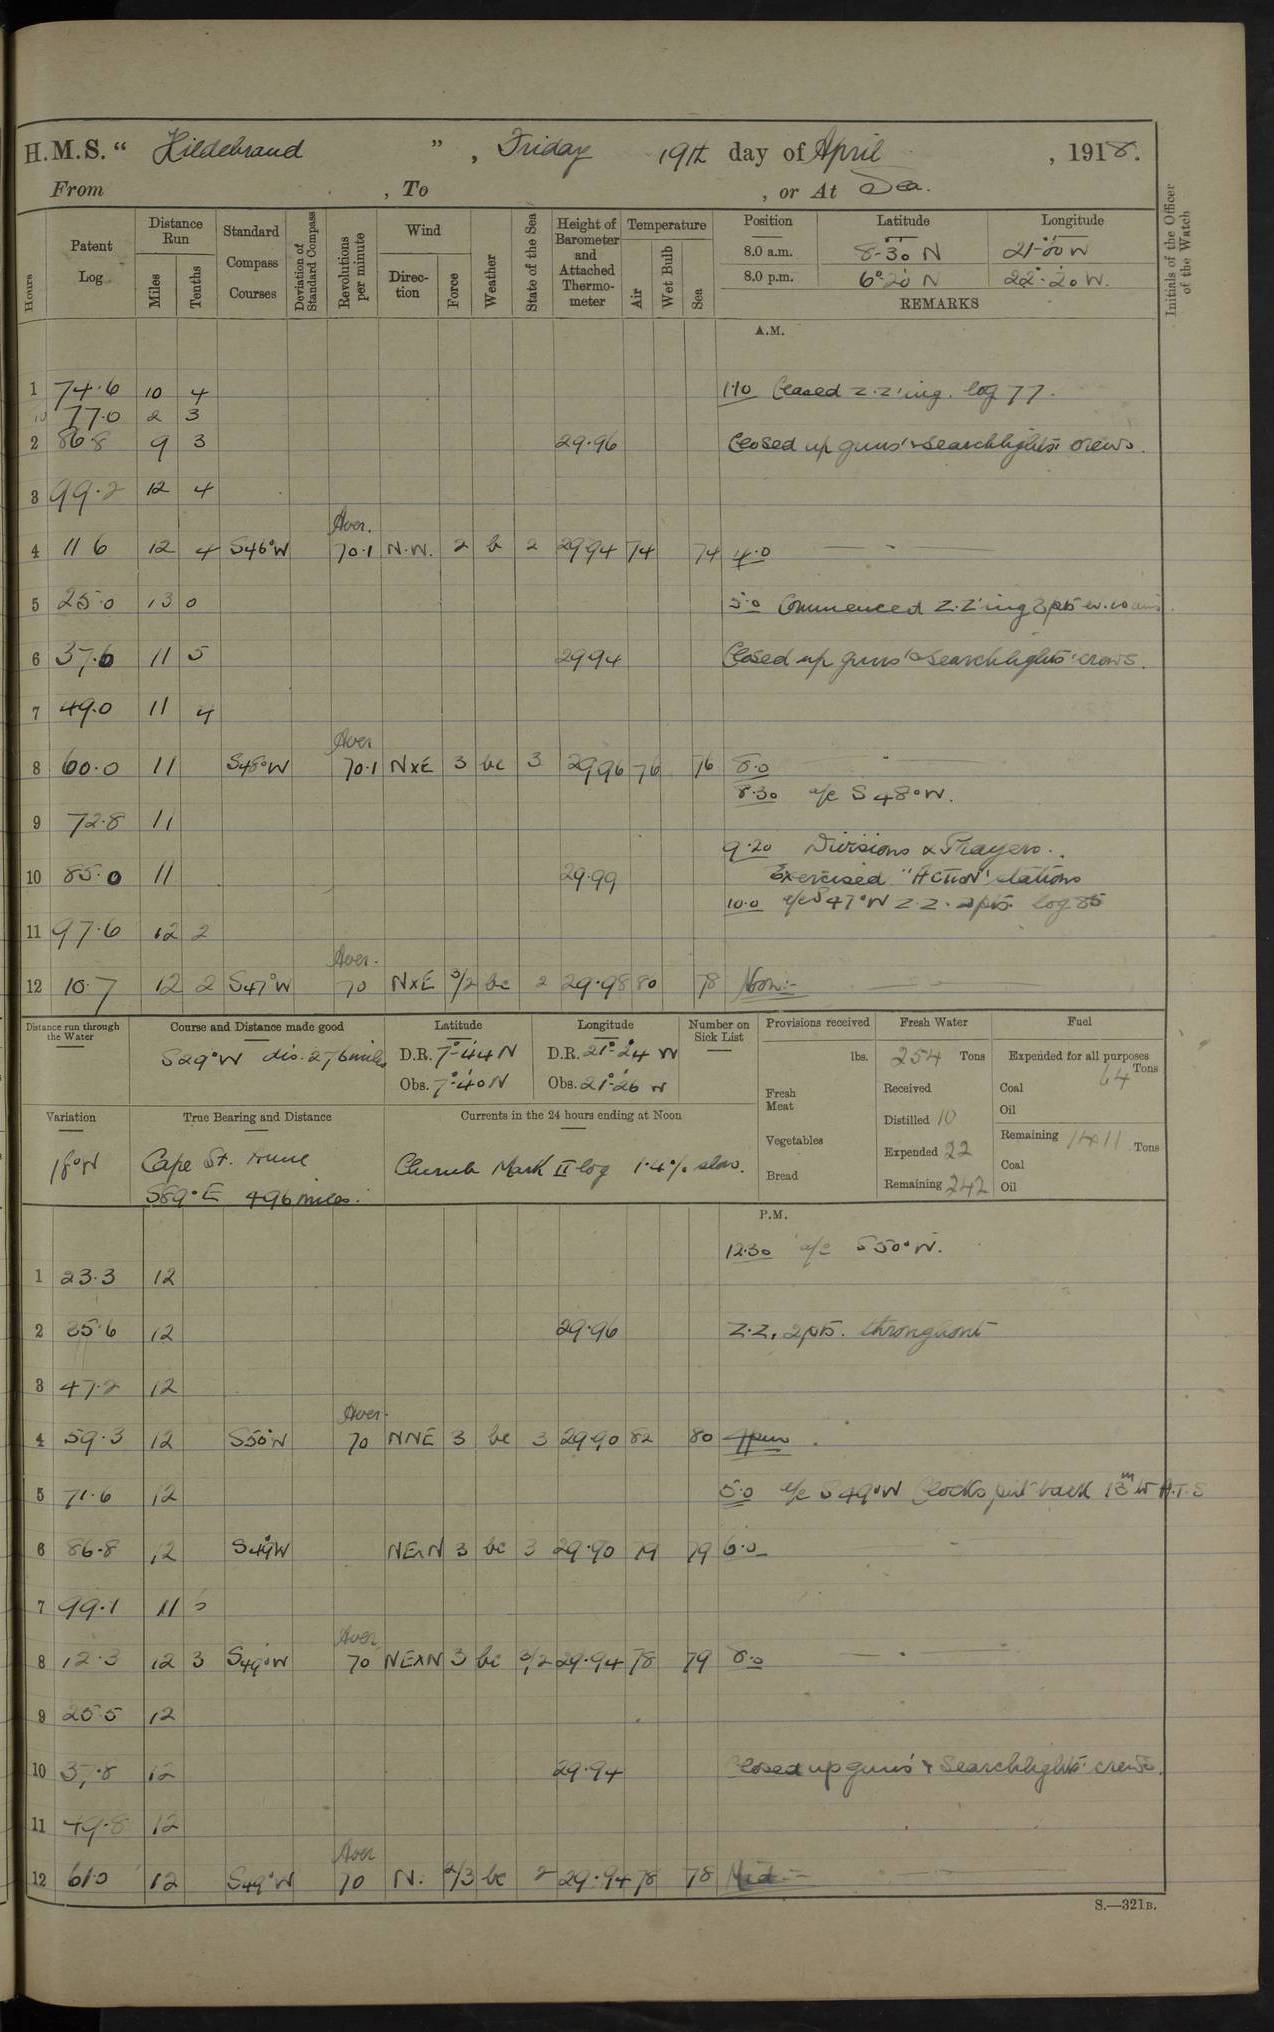 H.M.S. “ Hildebrand ” , Friday 19th day of April , 1918.
From , To , or At Sea.
Hours
Patent Log
Distance Run
Miles
Tenths
Standard Compass Courses
Deviation of Standard Compass
Revolutions per minute
Wind
Direction
Force
Weather
State of the Sea
Height of Barometer and Attached Thermometer
Temperature
Air
Wet Bulb
Sea
Position Latitude Longitude
8.0 a.m. 8°-30' N 21°-00' W
8.0 p.m. 6°-20' N 22°-20' W.
REMARKS
Initials of the Officer of the Watch
A.M.
1 74.6 10 4 1.10 Ceased Z.Z'ing. log 77.
10 77.0 2 3
2 86.8 9 3 29.96 Closed up guns' & searchlights' crews.
3 99.2 12 4
Aver.
4 11 6 12 4 S46°W 70.1 N.W. 2 b 2 29.94 74 74 4.0
5 25.0 13 0 5.0 Commenced Z.Z'ing
6 37.6 11 5 29.94 Closed up guns' & searchlights' crews.
7 49.0 11 4
Aver
8 60.0 11 S48°W 70.1 N×E 3 bc 3 29.96 76 76 8.0
8.30 a/c S 48°W.
9 72.8 11
9.20 Divisions & Prayers.
10 85.0 11 29.99 Exercised "ACTION" stations
10.0 a/c S 47°W Z.Z. 2pts. log 85
11 97.6 12 2
Aver.
12 10.7 12 2 S47°W 70 N×E 3/2 bc 2 29.98 80 78 Noon:-
Distance run through the Water
Course and Distance made good
S29°W dis. 276 miles
Latitude
D.R. 7°-44' N
Obs. 7°-40' N
Longitude
D.R. 21°-24' W
Obs. 21°-26' W
Number on Sick List
Provisions received
lbs.
Fresh Meat
Vegetables
Bread
Fresh Water
254 Tons
Received
Distilled 10
Expended 22
Remaining 242
Fuel
Expended for all purposes
64 Tons
Coal
Oil
Remaining 1411 Tons
Coal
Oil
Variation
18°W
True Bearing and Distance
Cape St. Anne
S89°E 496 miles.
Currents in the 24 hours ending at Noon
Cherub Mark II log 1.4% slow.
P.M.
12.30 a/c S50°W.
1 23.3 12
2 35.6 12 29.96 Z.Z. 2pts. throughout
3 47.2 12
Aver.
4 59.3 12 S50°W 70 NNE 3 bc 3 29.90 82 80 4pm
5 71.6 12 5.0 a/c S49°W Clocks put back to A.T.S
6 86.8 12 S49°W NE×N 3 bc 3 29.90 79 79 6.0
7 99.1 11
Aver
8 12.3 12 3 S49°W 70 NE×N 3 bc 3/2 29.94 78 79 8.0
9 25.5 12
10 37.8 12 29.94 Closed up guns' & Searchlights' crews.
11 49.8 12
Aver
12 61.0 12 S49°W 70 N. 2/3 bc 2 29.94 78 78 Mid:-
S.—321B.